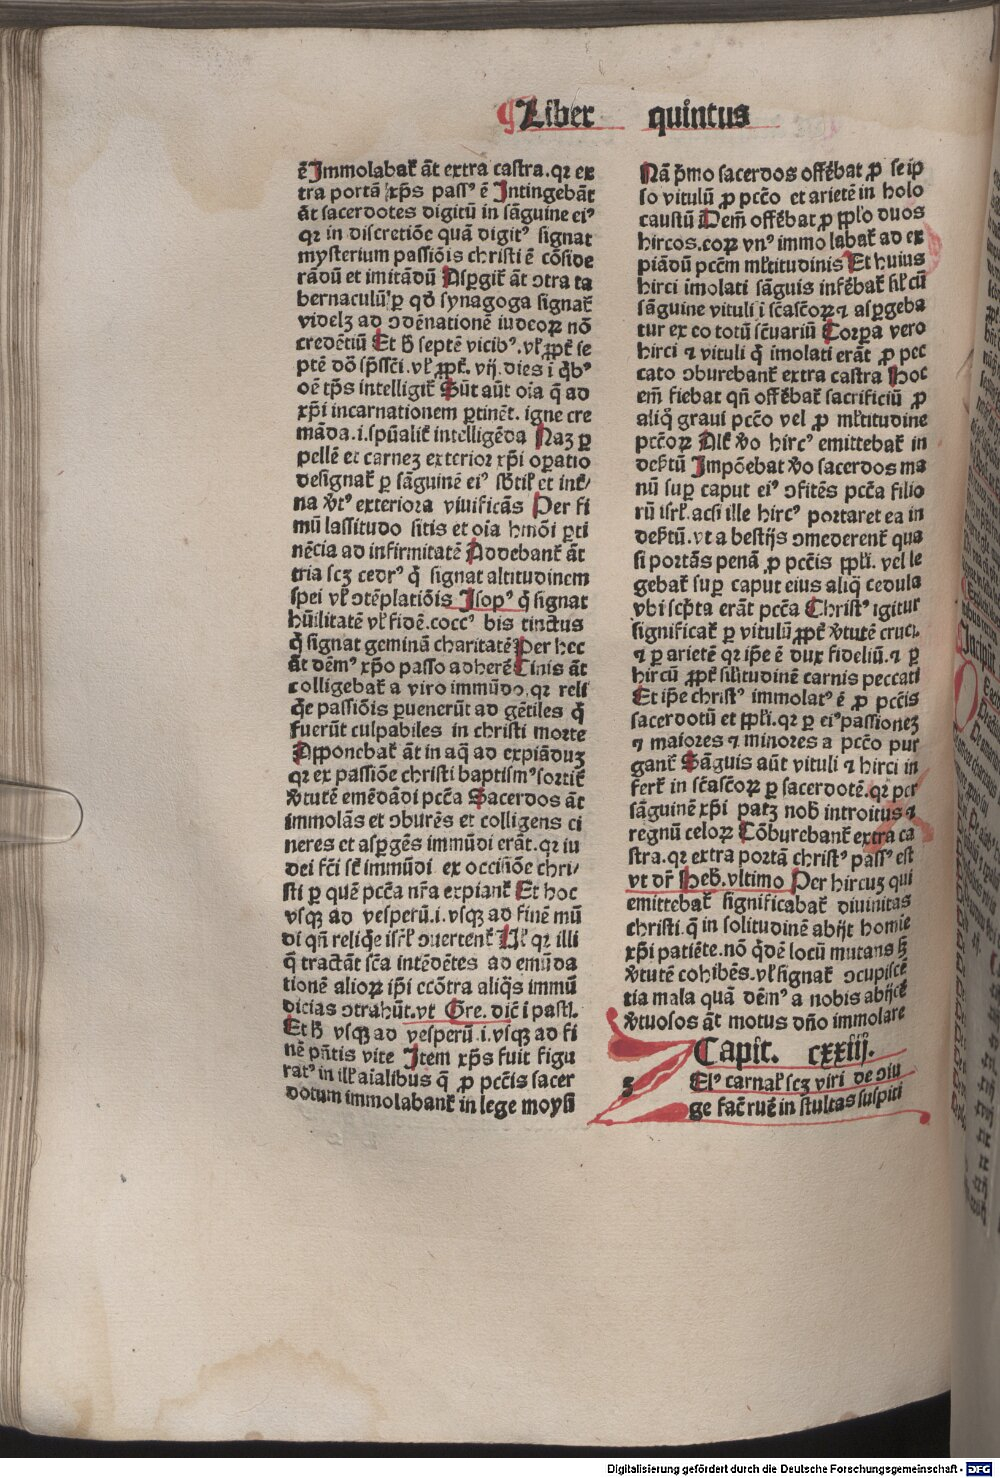 Liber quintus
ē Immolabat̄ āt extra castra.qꝛ ex
tra portā xp̄s pass⁹ ē Intingebāt
āt sacerdotes digitū in sāguine ei⁹
qꝛ in discretiōe quā digit⁹ signat
mysterium passiōis christi ē cōside
rādū et imitādū Asꝑgit̄ āt ↄtra ta
bernaculū ꝑ qd̄ synagoga signat̄
videlꝫ ad ↄdēnationē iudeoꝝ nō
credētiū Et h̄ septē vicib⁹.vl̄ ꝓpt̄ se
ptē dōa sp̄ssc̄i.vl̄ ꝓpt̄.vij.dies ī q̄b⁹
oē tp̄s intelligit̄ Sūt aūt oīa q̄ ad
xp̄i incarnationem ꝑtinēt.igne cre
māda.i.spūalit̄ intelligēda Naꝫ ꝑ
pellē et carneꝫ exterior xp̄i oꝑatio
designat̄ ꝑ sāguinē ei⁹ sb̄til̄ et int̄/
na v̄t⁹ exteriora viuificās Per fi
mū lassitudo sitis et oīa hmōi ꝑti
nēcia ad infirmitatē Addebant̄ āt
tria scꝫ cedr⁹ q̄ signat altitudinem
spei vl̄ ↄtēplatiōis Isop⁹ q̄ signat
hūilitatē vl̄ fidē.cocc⁹ bis tinctus
q̄ signat geminā charitatē Per hec
āt dēm⁹ xp̄o passo adherē Cinis āt
colligebat̄ a viro immūdo.qꝛ reli
q̄e passiōis ꝑuenerūt ad gētiles q̄
fuerūt culpabiles in christi morte
Apponebat̄ āt in aq̄ ad expiāduꝫ
qꝛ ex passiōe christi baptism⁹ sortit̄
v̄tutē emēdādi pctā Sacerdos āt
immolās et ↄburēs et colligens ci
neres et asꝑgēs immūdi erāt.qꝛ iu
dei fc̄i st̄ immūdi ex occisiōe chri/
sti ꝑ quē pctā nr̄a expiant̄ Et hoc
vsqꝫ ad vesperū.i.vsqꝫ ad finē mū
di qn̄ reliq̄e isrl̄ ↄuertent̄ Ul̄ qꝛ illi
q̄ tractāt sc̄a intēdētes ad emūda
tionē alioꝝ ip̄i ecōtra aliq̄s immū
dicias ↄtrahūt.vt Gre.dic̄ i pastl̄.
Et h̄ vsqꝫ ad vesperū.i.vsqꝫ ad fi
nē pn̄tis vite Item xp̄s fuit figu
rat⁹ in ill̄ aīalibus q̄ ꝓ pctīs sacer
dotum immolabant̄ in lege moysi
Nā p̄mo sacerdos offēbat ꝓ se ip
so vitulū ꝓ pctō et arietē in holo
caustū Dem̄ offēbat ꝓ pp̄lo duos
hircos.coꝝ vn⁹ immolabat̄ ad ex
piādū pctm̄ ml̄titudinis Et huius
hirci īmolati sāguis infēbat̄ sil̄ cū
sāguine vituli ī sc̄asc̄oꝝ ⁊ asꝑgeba
tur ex eo totū sc̄uariū Corꝑa vero
hirci ⁊ vituli q̄ imolati erāt ꝓ pec
cato ↄburebant̄ extra castra Hoc
em̄ fiebat qn̄ offēbat̄ sacrificiū ꝓ
aliq̄ graui pctō vel ꝓ ml̄titudine
pctōꝝ Ali⁹ v̄o hirc⁹ emittebat̄ in
deb̄tū Impōebat v̄o sacerdos ma
nū suꝑ caput ei⁹ ↄfitēs pctā filio
rū isrl̄.acsi ille hirc⁹ portaret ea in
deb̄tū.vt a bestijs ↄmederent̄ qua
si portās penā ꝓ pctīs pp̄li. vel le
gebat̄ suꝑ caput eius aliq̄ cedula
vbi scp̄ta erāt pctā Christ⁹ igitur
significat̄ ꝑ vitulū ꝓpt̄ v̄tutē cruc.
⁊ ꝑ arietē qꝛ ip̄e ē dux fideliū.⁊ ꝑ
hircū ꝓpt̄ sil̄itudinē carnis peccati
Et ip̄e christ⁹ immolat⁹ ē ꝓ pctīs
sacerdotū et pp̄li.qꝛ ꝑ ei⁹ passioneꝫ
⁊ maiores ⁊ minores a pctō pur
gant̄ Sāguis aūt vituli ⁊ hirci in
fert̄ in sc̄asc̄oꝝ ꝑ sacerdotē.qꝛ per
sāguinē xp̄i patꝫ nob̄ introitus ⁊
regnū celoꝝ Cōburebant̄ extra ca
stra.qꝛ extra portā christ⁹ pass⁹ est
vt dr̄ Heb̄.vltimo Per hircuꝫ qui
emittebat̄ significabat̄ diuinitas
christi.q̄ in solitudinē abijt homīe
xp̄i patiēte.nō q̄dē locū mutans sꝫ
v̄tutē cohibēs.vl̄ signat̄ ↄcupiscē
tia mala quā dēm⁹ a nobis abijcē
v̄tuosos āt motus dn̄o immolare
Capit. cxxiij.
z El⁹ carnal̄ scꝫ viri de ↄiu
ge fac̄ ruē in stultas suspiti
Digitalisierung gefördert durch die Deutsche Forschungsgemeinschaft - DFG